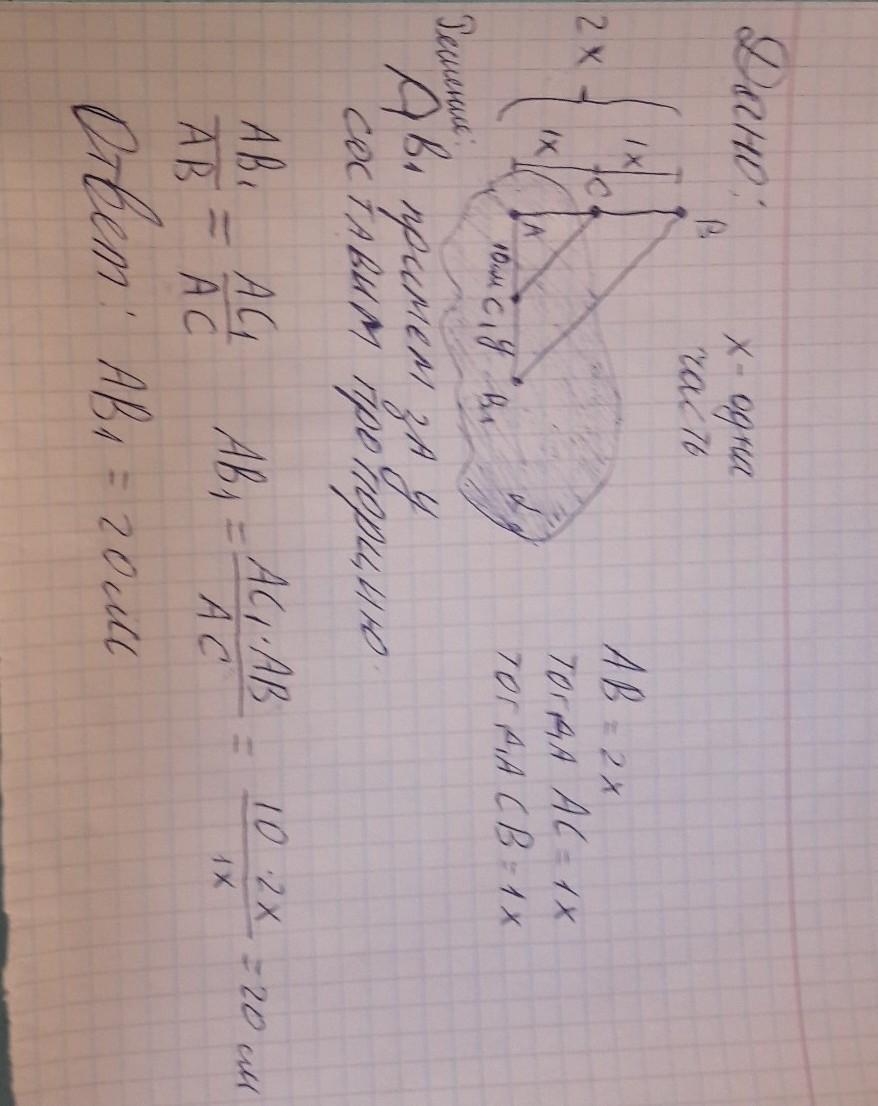 Дано:
x - одна
часть
2x
1x
1x
B
C
A
10см C₁ y B₁
α
AB = 2x
тогда AC = 1x
тогда CB = 1x
Решение:
AB₁ примем за y
составим пропорцию.
AB₁/AB = AC₁/AC AB₁ = AC₁·AB/AC = 10·2x/1x = 20 см
Ответ: AB₁ = 20см